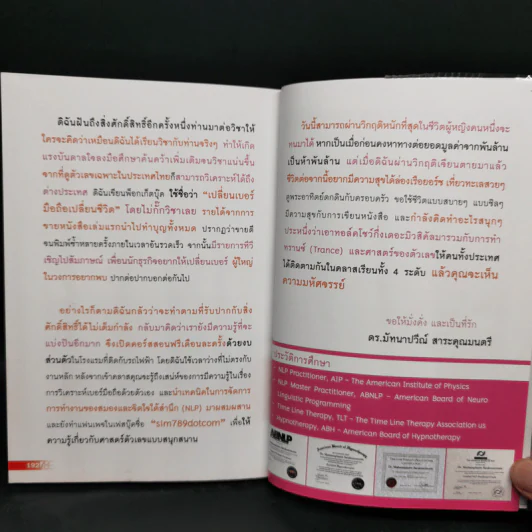 ดิฉันฝันถึงสิ่งศักดิ์สิทธิ์อีกครั้งหนึ่งท่านมาต่อวิชาให้
ใครจะคิดว่าเหมือนดิฉันได้เรียนวิชากับท่านจริงๆ ทำให้เกิด
แรงบันดาลใจลงมือศึกษาค้นคว้าเพิ่มเติมจนวิชาแน่นขึ้น
จากที่ดูตัวเลขเฉพาะในประเทศไทยก็สามารถวิเคราะห์ได้ถึง
ต่างประเทศ ดิฉันเขียนพ็อกเก็ตบุ๊ค ใช้ชื่อว่า "เปลี่ยนเบอร์
มือถือเปลี่ยนชีวิต" โดยไม่กั๊กวิชาเลย รายได้จากการ
ขายหนังสือเล่มแรกนำไปทำบุญทั้งหมด ปรากฏว่าขายดี
จนพิมพ์ซ้ำหลายครั้งภายในเวลาอันรวดเร็ว จากนั้นมีรายการทีวี
เชิญไปสัมภาษณ์ เพื่อนนักธุรกิจอยากให้เปลี่ยนเบอร์ ผู้ใหญ่
ในวงการอยากพบ ปากต่อปากบอกต่อกันไป
อย่างไรก็ตามดิฉันกลัวว่าจะทำตามที่รับปากกับสิ่ง
ศักดิ์สิทธิ์ได้ไม่เต็มกำลัง กลับมาคิดว่าเรายังมีความรู้ที่จะ
แบ่งปันอีกมาก จึงเปิดคอร์สสอนฟรีเดือนละครั้งด้วยงบ
ส่วนตัวในโรงแรมที่ติดกับรถไฟฟ้า โดยดิฉันใช้เวลาว่างที่ไม่ตรงกับ
งานหลัก หลังจากเข้าคลาสคุณจะรู้ถึงเสน่ห์ของการมีความรู้ในเรื่อง
การวิเคราะห์เบอร์มือถือด้วยตัวเอง และนำเทคนิคในการจัดการ
การทำงานของสมองและจิตใต้สำนึก (NLP) มาผสมผสาน
และยังทำแฟนเพจในเฟสบุ๊คชื่อ "sim789dotcom" เพื่อให้
ความรู้เกี่ยวกับศาสตร์ตัวเลขแบบสนุกสนาน
192
วันนี้สามารถผ่านวิกฤติหนักที่สุดในชีวิตผู้หญิงคนหนึ่งจะ
ทนมาได้ หากเป็นเมื่อก่อนคงหาทางต่อยอดมูลค่าจากพันล้าน
เป็นห้าพันล้าน แต่เมื่อดิฉันผ่านวิกฤติเจียนตายมาแล้ว
ชีวิตต่อจากนี้อยากมีความสุขได้ล่องเรือยอร์ช เที่ยวทะเลสวยๆ
ดูพระอาทิตย์ตกดินกับครอบครัว ขอใช้ชีวิตแบบสบายๆ แบบชิลๆ
มีความสุขกับการเขียนหนังสือ และกำลังคิดทำอะไรสนุกๆ
ประหนึ่งว่าเอาทอล์คโชว์กึ่งเดอะมิวสิคัลมารวมกับการทำ
ทรานซ์ (Trance) และศาสตร์ของตัวเลขให้คนทั้งประเทศ
ได้ติดตามกันในคลาสเรียนทั้ง 4 ระดับ แล้วคุณจะเห็น
ความมหัศจรรย์
ขอให้มั่งคั่ง และเป็นที่รัก
ดร.มัทนาปวีณ์ สาระคุณมนตรี
ประวัติการศึกษา
- NLP Practitioner, AIP - The American Institute of Physics
- NLP Master Practioner, ABNLP - American Board of Neuro
Linguistic Programming
- Time Line Therapy, TLT - The Time Line Therapy Association us
- Hypnotherapy, ABH - American Board of Hypnotherapy